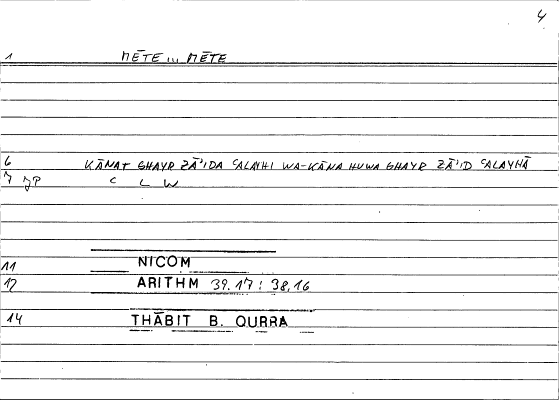 4
1 MĒTE ... MĒTE
6 KĀNAT GHAYR ZĀʾIDA ʿALAYHI WA-KĀNA HUWA GHAYR ZĀʾID ʿALAYHĀ
7 JP C L W
11 NICOM
12 ARITHM 39.17 : 38,16
14 THĀBIT B. QURRA